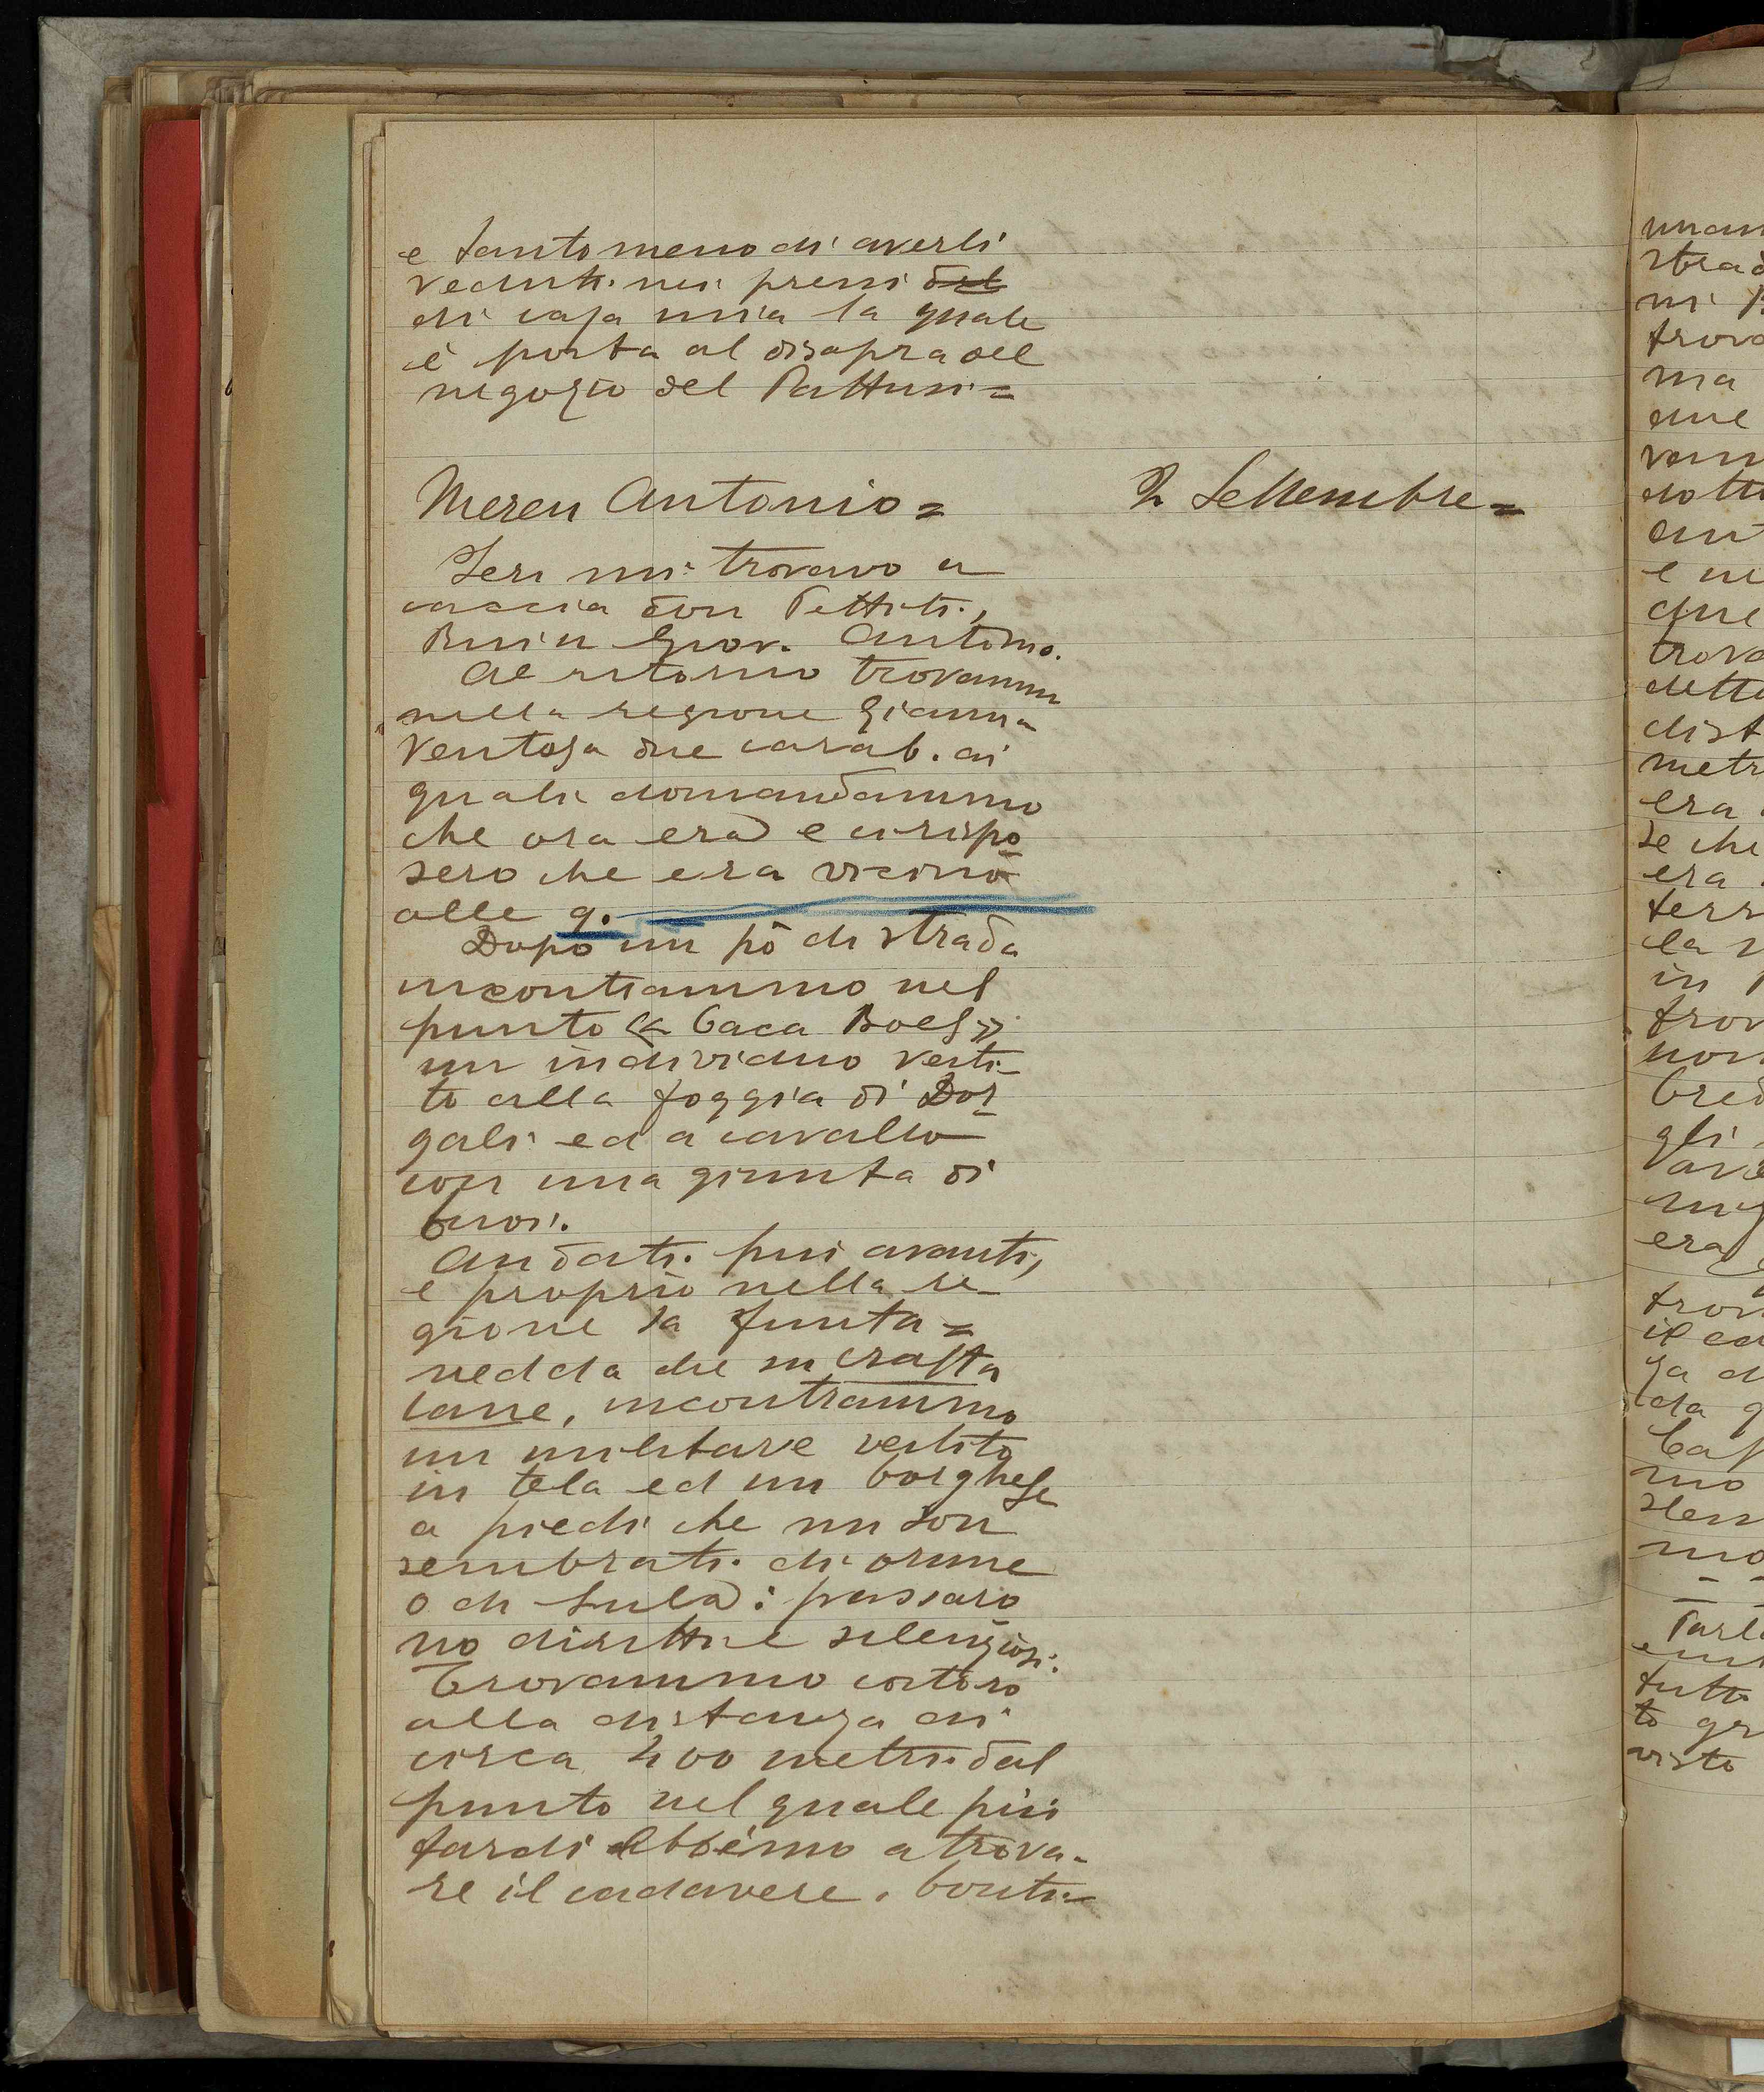 e tanto meno di averli
veduti nei pressi del
di casa mia la quale
è posta al disopra del
negozio del Pattusi =
Mereu Antonio =
2 Settembre =
Ieri mi trovavo a
caccia con Pettiti,
Ruiu Giov. Antonio.
Al ritorno trovammo
nella regione Gianna
Ventosa due carab. ai
quali domandammo
che ora era e ci rispo
sero che era vicino
alle 9.
Dopo un pò di strada
incontrammo nel
punto « Caca Boes »
un individuo vesti-
to alla foggia di Dor
gali ed a cavallo
con una giunta di
buoi.
Andati più avanti,
e proprio nella re-
gione sa funta =
nedda de su crasta
cane, incontrammo
un militare vestito
in tela ed un borghese
a piedi che mi son
sembrati di Orune
o di Lula: passaro
no diritti e silenziosi.
Trovammo costoro
alla distanza di
circa 400 metri dal
punto nel quale più
tardi ebbimo a trova-
re il cadavere. Conti-
unan
strad
ni
trova
ma
due
ven
dotti
ant
e ne
due
trova
dette
dist
metr
era
se che
era
terr
la
in
trov
non
Cred
gli
ave
era
trov
il ca
za d
da q
Cas
mo
stem
mo
Parl
tutt
to gr
visto